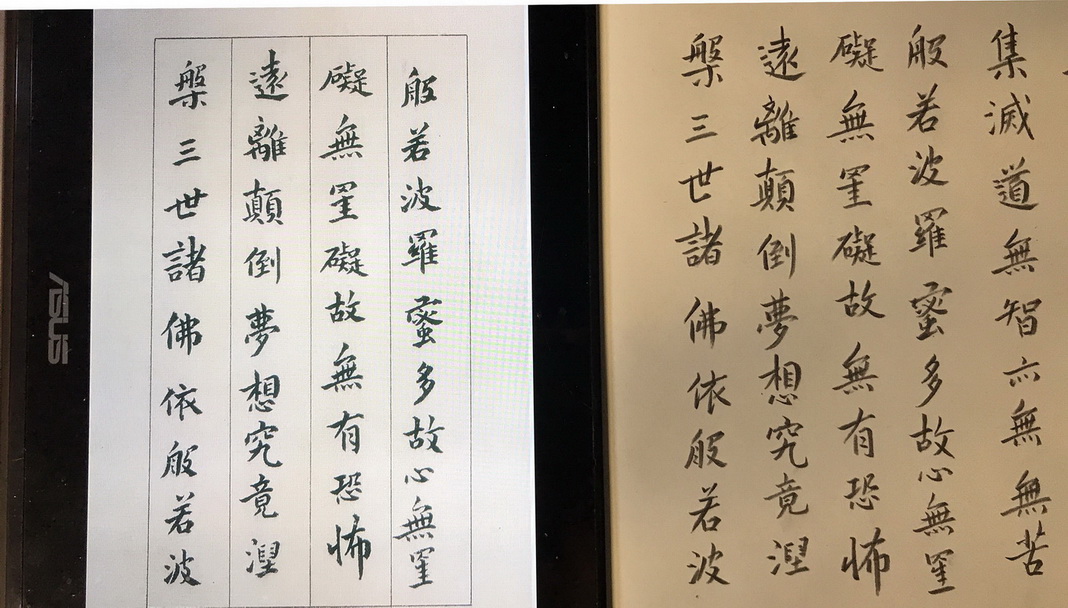 ASUS
般若波羅蜜多故心無罣
礙無罣礙故無有恐怖
遠離顛倒夢想究竟涅
槃三世諸佛依般若波
集滅道無智亦無無苦
般若波羅蜜多故心無罣
礙無罣礙故無有恐怖
遠離顛倒夢想究竟涅
槃三世諸佛依般若波